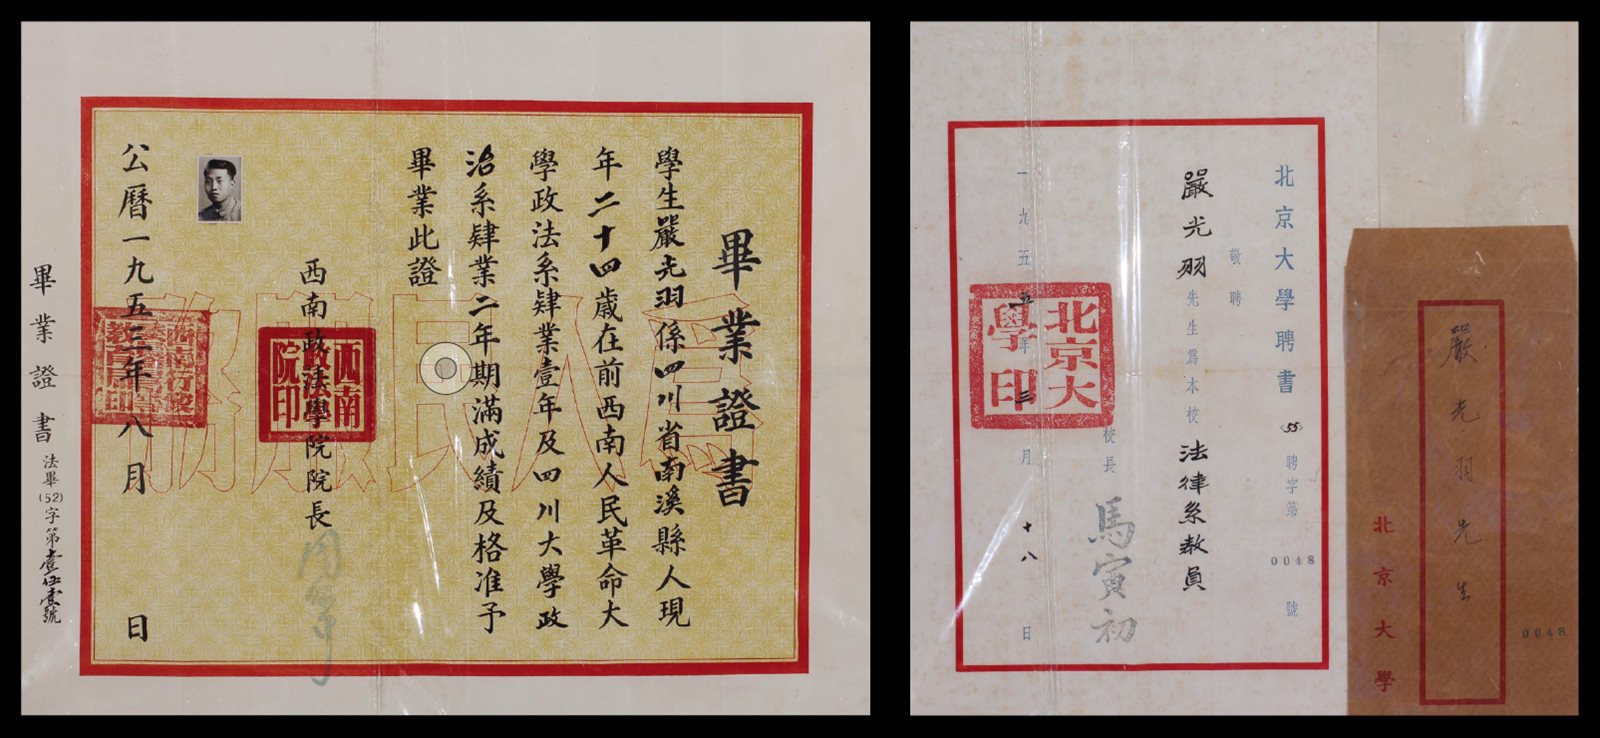 畢業證書
學生嚴光羽係四川省南溪縣人現
年二十四歲在前西南人民革命大
學政法系肄業壹年及四川大學政
治系肄業二年期滿成績及格准予
畢業此證
西南政法學院院長
公曆一九五三年八月 日
西南政法學院印
為人民服務
畢業證書 法畢(52)字第壹伍壹號
北京大學聘書 (55) 聘字第 0048 號
敬聘
嚴光羽先生為本校法律系教員
校長 馬寅初
一九五五年三月十八日
北京大學印
嚴光羽先生
北京大學
0048